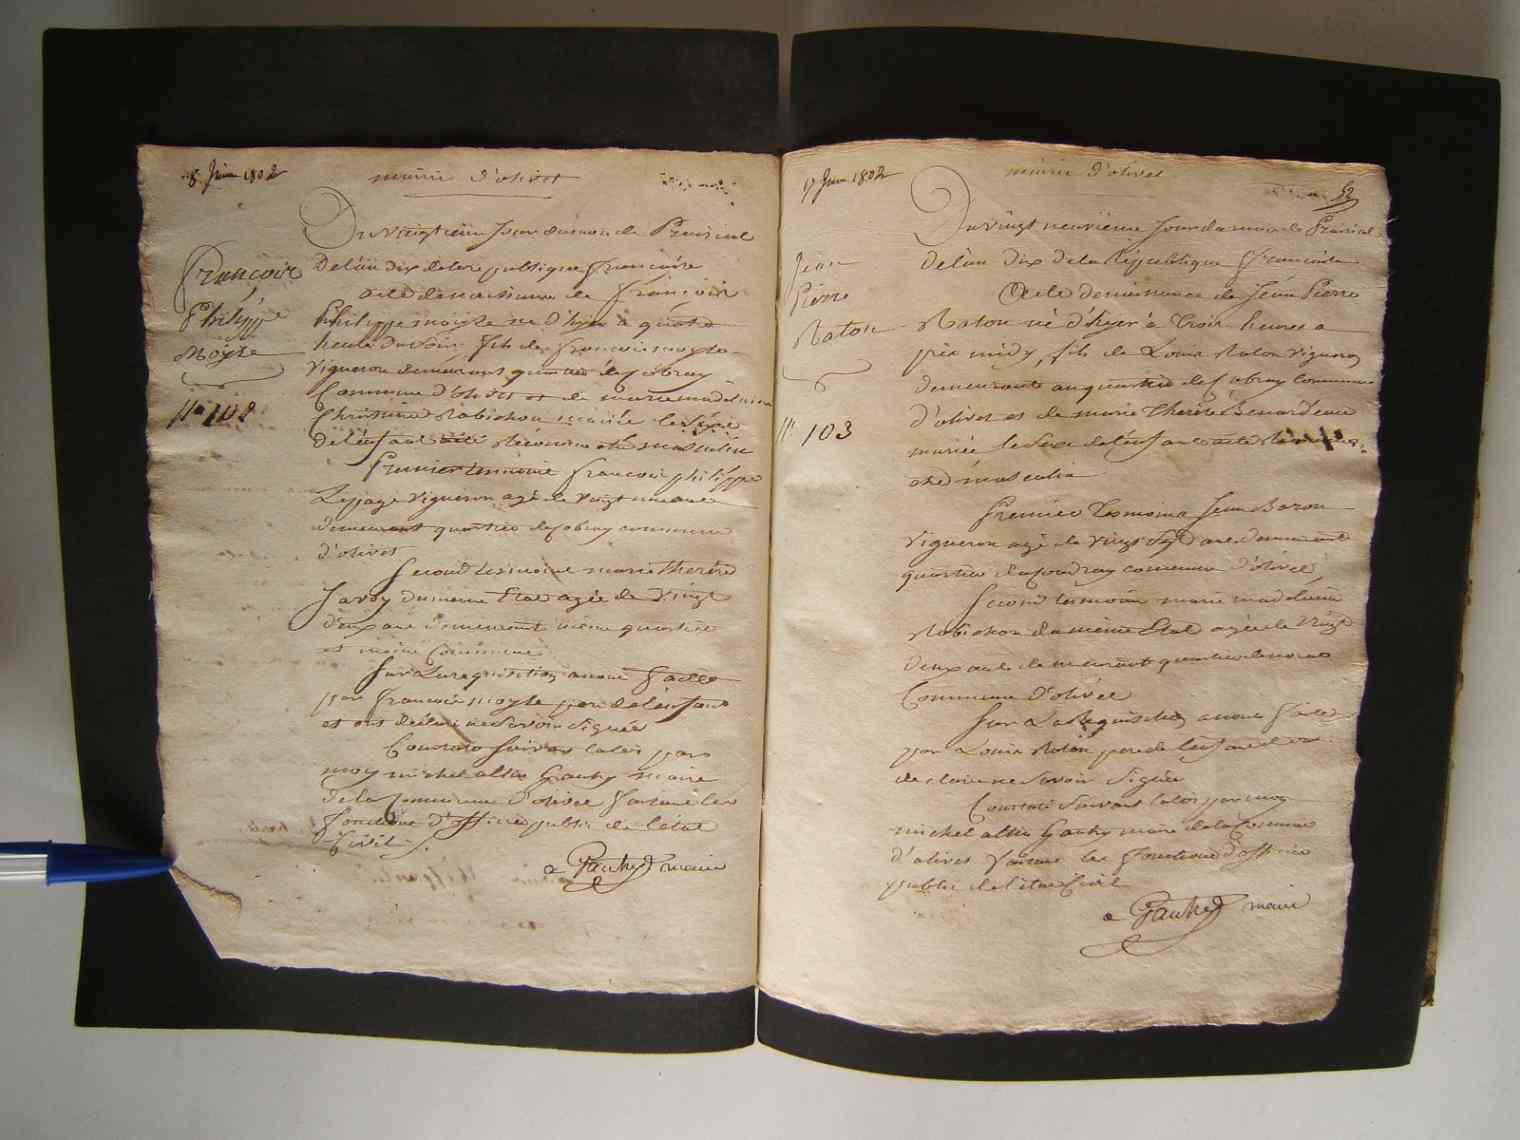 8 Juin 1802
mairie d'olivet
françois
Philippe
Moyse
n° 102
Du vingtieme Jour du mois de Prairial
De l'an dix de la republique françoise
acte de naissance de françois
Philippe moyse né d'hyer à quatre
heure du soir fils de françois moyse
vigneron demeurant quartier de
Commune d'olivet et de marie madeleine
Christine Robichon mariée le sexe
de l'enfant a été Reconnu etre masculin
Premier temoins françois philippe
Lepage vigneron agé de vingt
demeurant quartier commune
d'olivet
Second temoins marie therese
Javoy du meme Etat agée de vingt
deux ans demeurant même quartier
et même Commune
Sur La requisition a nous faitte
par françois moyse pere de l'enfant
et ont déclaré ne savoir signer
Constaté suivant la loi par
moy michel alba Gauhy maire
de la Commune d'olivet faisant les
fonctions d'officier public de l'état
Civil
a Gauhy maire
17 Juin 1802
mairie d'olivet
52
Jean
Pierre
Raton
n° 103
Du vingt neuvieme Jour du mois de Prairial
de l'an dix de la Republique françoise
Acte de naissance de Jean Pierre
Raton né d'hyer à trois heures a
près midy, fils de Louis Raton vigneron
demeurant au quartier de commune
d'olivet et de marie Therese Benardeau
mariée le sexe de l'enfant a été Reconnu
etre masculin
Premier temoins Jean Baron
Vigneron agé de vingt sept ans demeurant
quartier du coudray commune d'olivet
Second temoin marie madeleine
Robichon du même Etat agée de vingt
deux ans demeurant quartier
Commune d'olivet
Sur La Requisition a nous faitte
par Louis Raton pere de l'enfant
declaré ne savoir signer
Constaté suivant la loi par moy
michel alba Gauhy maire de la Commune
d'olivet faisant les fonctions d'officier
public de l'état Civil
a Gauhy maire